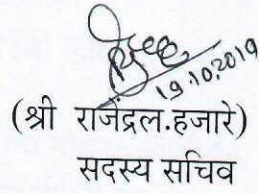 19.10.2019
(श्री राजेंद्रल.हजारे)
सदस्य सचिव